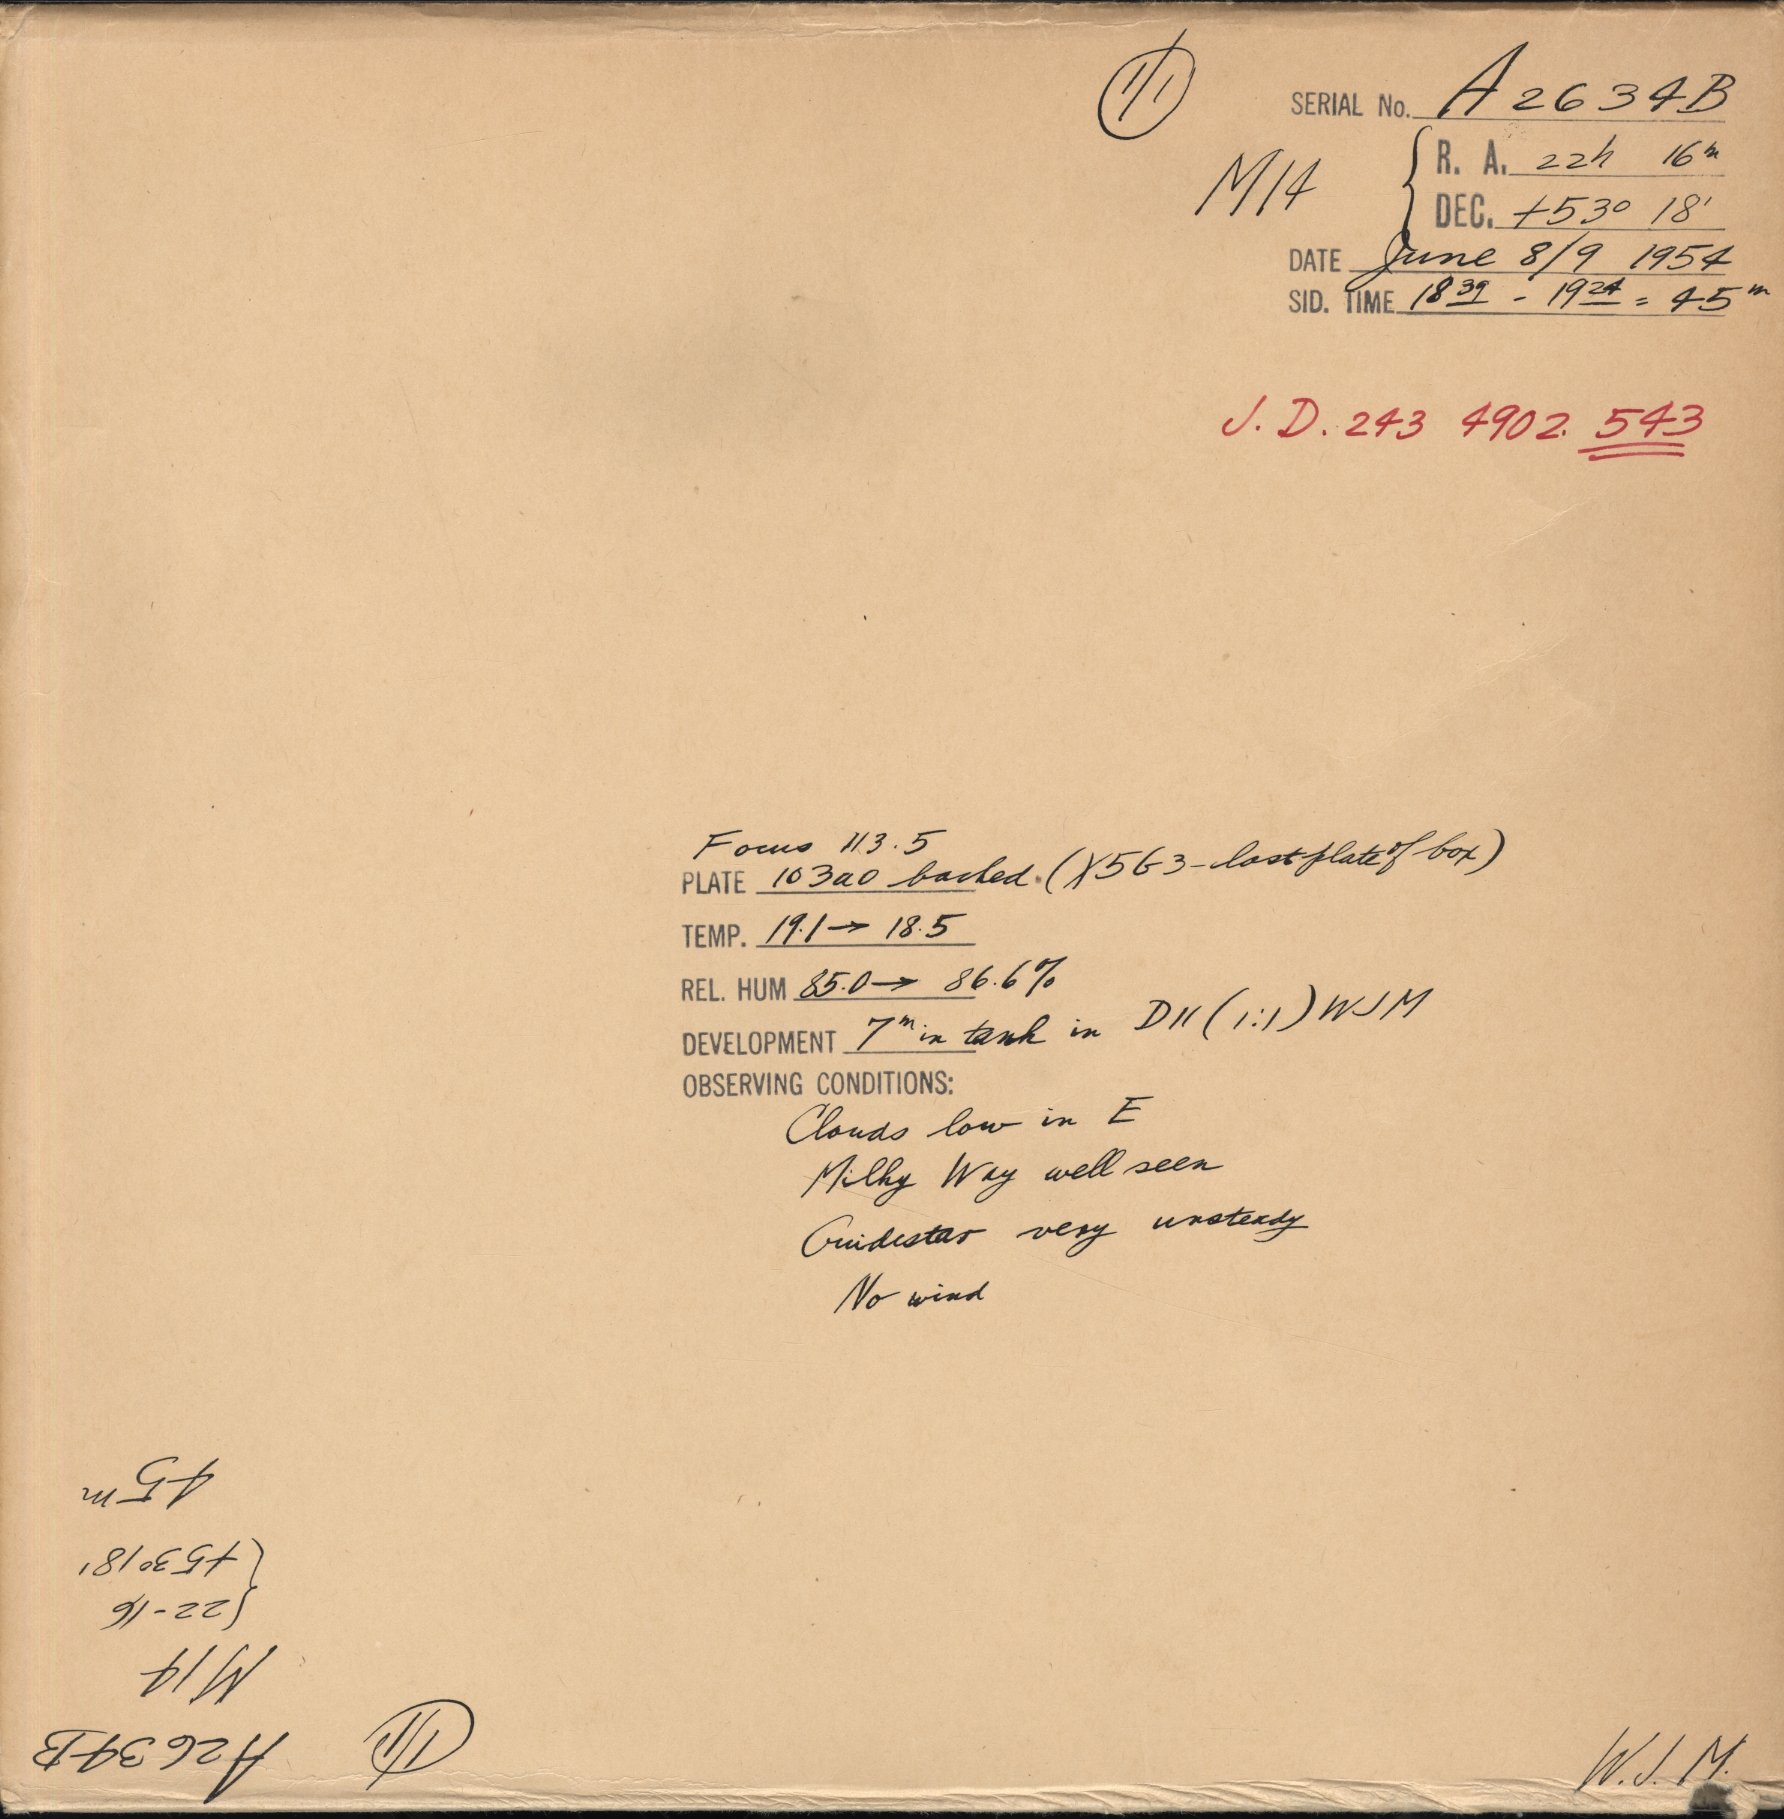 1/1
SERIAL No. A2634B
M14 { R. A. 22h 16m
DEC. +53° 18'
DATE June 8/9 1954
SID. TIME 18 39 - 19 24 = 45m
J.D. 243 4902.543
Focus 113.5
PLATE 103a0 backed. (X563-last plate of box)
TEMP. 19.1 → 18.5
REL. HUM 85.0 → 86.6%
DEVELOPMENT 7m in tank in D11 (1:1) WJM
OBSERVING CONDITIONS:
Clouds low in E
Milky Way well seen
Guidestar very unsteady
No wind
W.J.M.
A2634B 1/1
M14
{ 22-16
+53°18'
45m